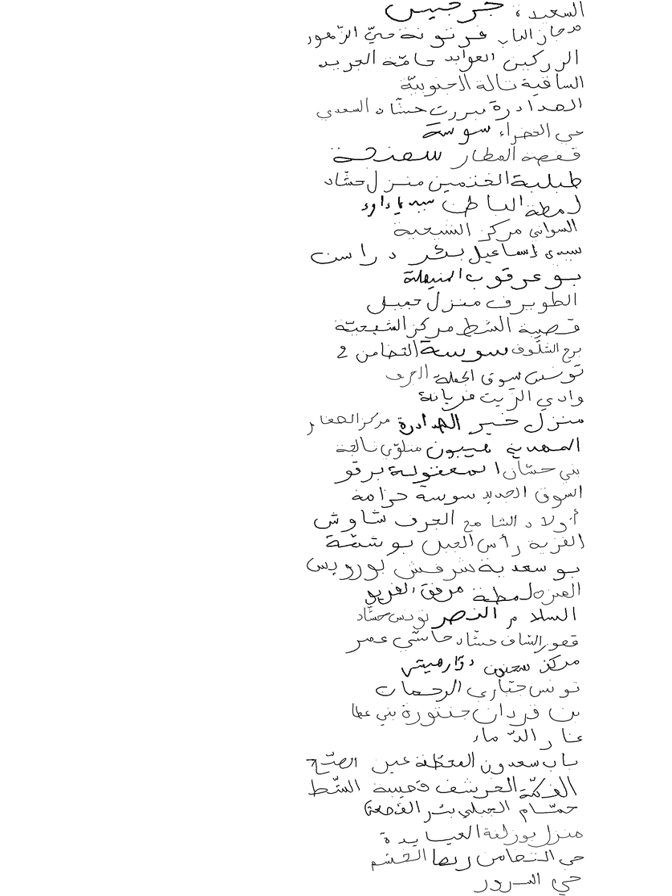 السعيدة جرجيس
مجاز الباب فرنونة حيّ الزهور
الركبين العوابد حامّة الجريد
الساقية تالة الجنوبيّة
الصدادرة تبرزت حشّاد السعدي
حي الخضراء سوسة
قفصة المطار سفنجة
طبلبة الخذمين منزل حشّاد
لمطة الباطن سيدي داود
السواني مركز الشيحية
سيدي إسماعيل بئر دراسن
بوعرقوب المنيهلة
الطويرف منزل جميل
قصيبة الشط مركز الشيحيّة
برج الشلّوف سوسة التضامن 2
تونس سوق الجملة الجرف
وادي الزيت فريانة
منزل خير الصدادرة مركز
المهدية هيبون متلوّي ثالجة
بني حسّان المعقولة برقو
السوق الجديد سوسة حزامة
أولاد الشامخ الجرف شاوش
القرية رأس الجبل بوشمّة
بوسعدية شرفش بورويس
العنزة لمطة مرفق
السلام النصر تونس حشّاد
قصور الساف حشّاد حاشي عمر
مركز سحنون
تونس جبّاري الرحمات
بن قردان جنتورة بني عطا
غار الدّماء
باب سعدون المحطّة عين
الفكّة العريشف قصيبة الشّط
حمّام الجبلي بئر القصعة
منزل بوزلفة العيايدة
حي التضامن ريحا القشيم
حي السرور